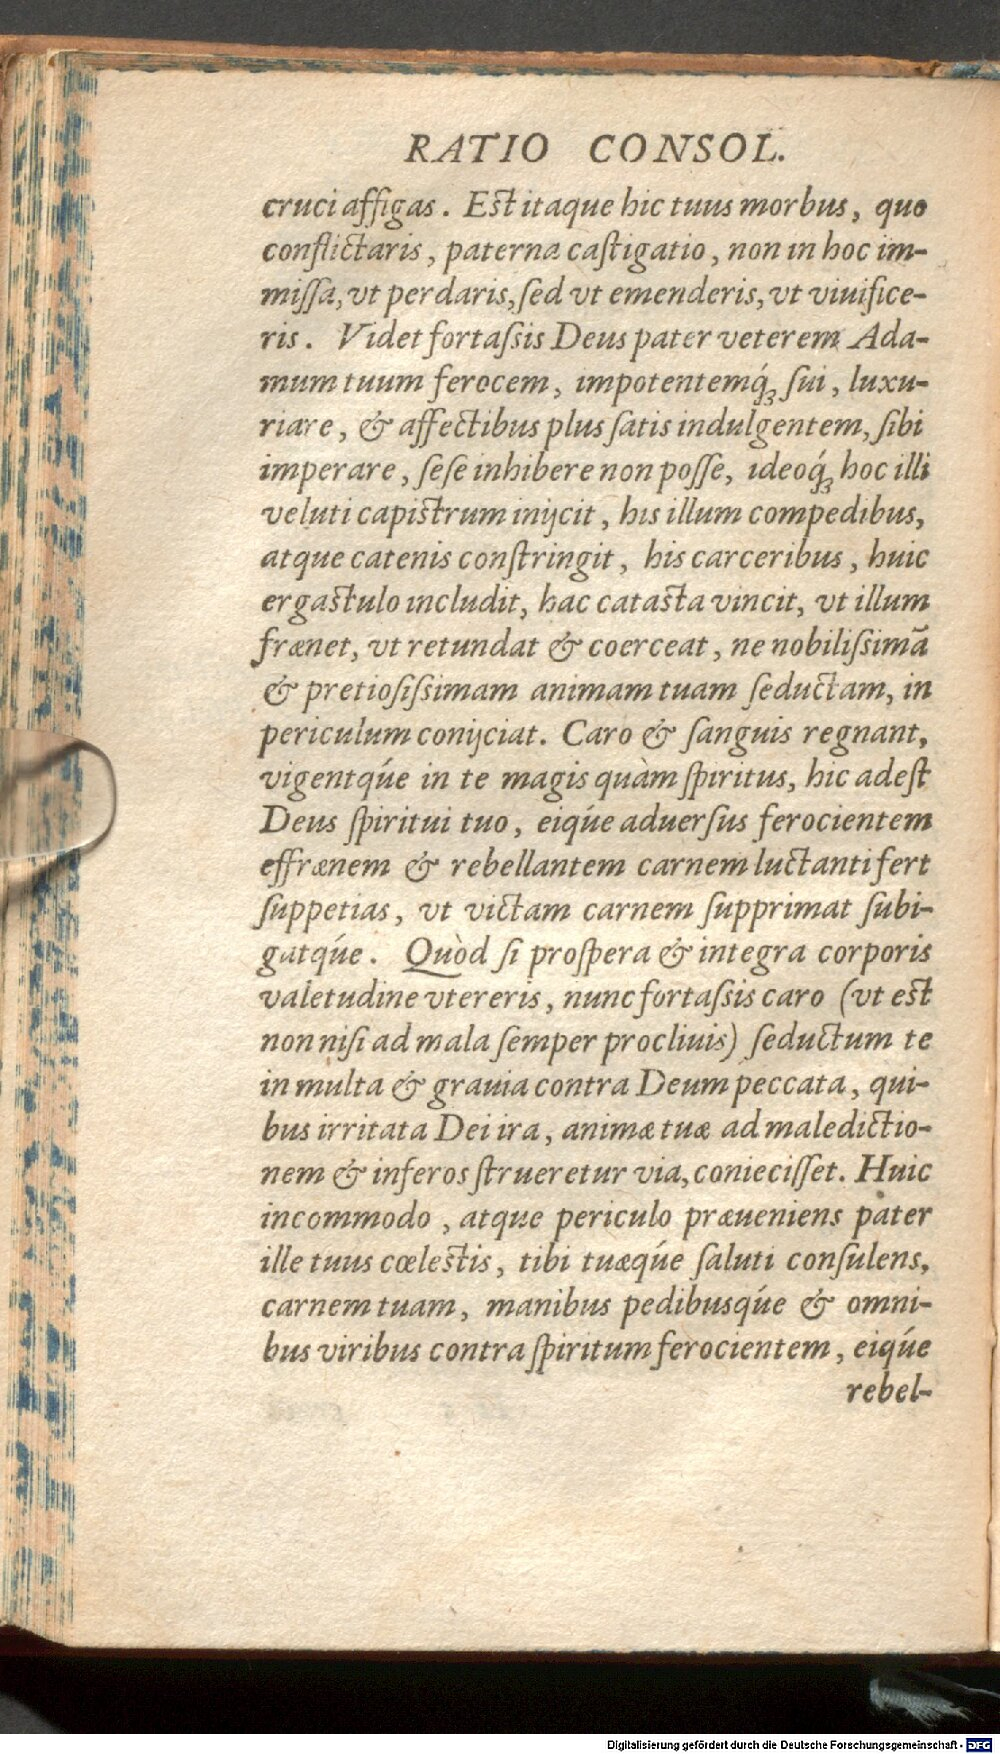 RATIO CONSOL.
cruci affigas. Est itaque hic tuus morbus, quo
conflictaris, paterna caſtigatio, non in hoc im-
miſſa, vt perdaris, ſed vt emenderis, vt viuifice-
ris. Videt fortaſsis Deus pater veterem Ada-
mum tuum ferocem, impotentemq́ꝫ ſui, luxu-
riare, & affectibus plus ſatis indulgentem, ſibi
imperare, ſeſe inhibere non poſſe, ideoq́ꝫ hoc illi
veluti capistrum inijcit, his illum compedibus,
atque catenis conſtringit, his carceribus, huic
ergastulo includit, hac catasta vincit, vt illum
frænet, vt retundat & coerceat, ne nobiliſsimã
& pretioſiſsimam animam tuam ſeductam, in
periculum conijciat. Caro & ſanguis regnant,
vigentqúe in te magis quàm ſpiritus, hic adeſt
Deus ſpiritui tuo, eiqúe aduerſus ferocientem
effrænem & rebellantem carnem luctanti fert
ſuppetias, vt victam carnem ſupprimat ſubi-
gatqúe. Quòd ſi proſpera & integra corporis
valetudine vtereris, nunc fortaſsis caro (vt est
non niſi ad mala ſemper procliuis) ſeductum te
in multa & grauia contra Deum peccata, qui-
bus irritata Dei ira, animæ tuæ ad maledictio-
nem & inferos ſtrueretur via, conieciſſet. Huic
incommodo, atque periculo præueniens pater
ille tuus cœlestis, tibi tuæqúe ſaluti conſulens,
carnem tuam, manibus pedibusqúe & omni-
bus viribus contra ſpiritum ferocientem, eiqúe
rebel-
Digitalisierung gefördert durch die Deutsche Forschungsgemeinschaft - DFG